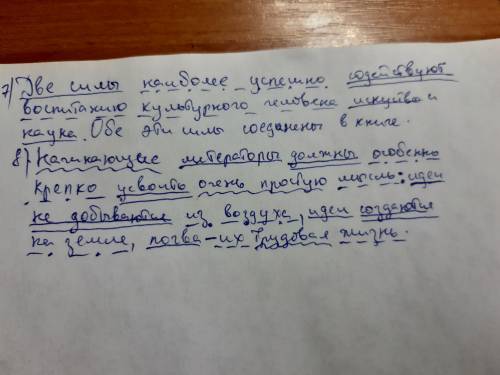 7) Две силы наиболее успешно содействуют
воспитанию культурного человека искуство и
наука. Обе эти силы соединены в книге.
8) Начинающие литераторы должны особенно
крепко усвоить очень простую мысль: идеи
не добываются из воздуха, идеи создаются
на земле, почва - их трудовая жизнь.